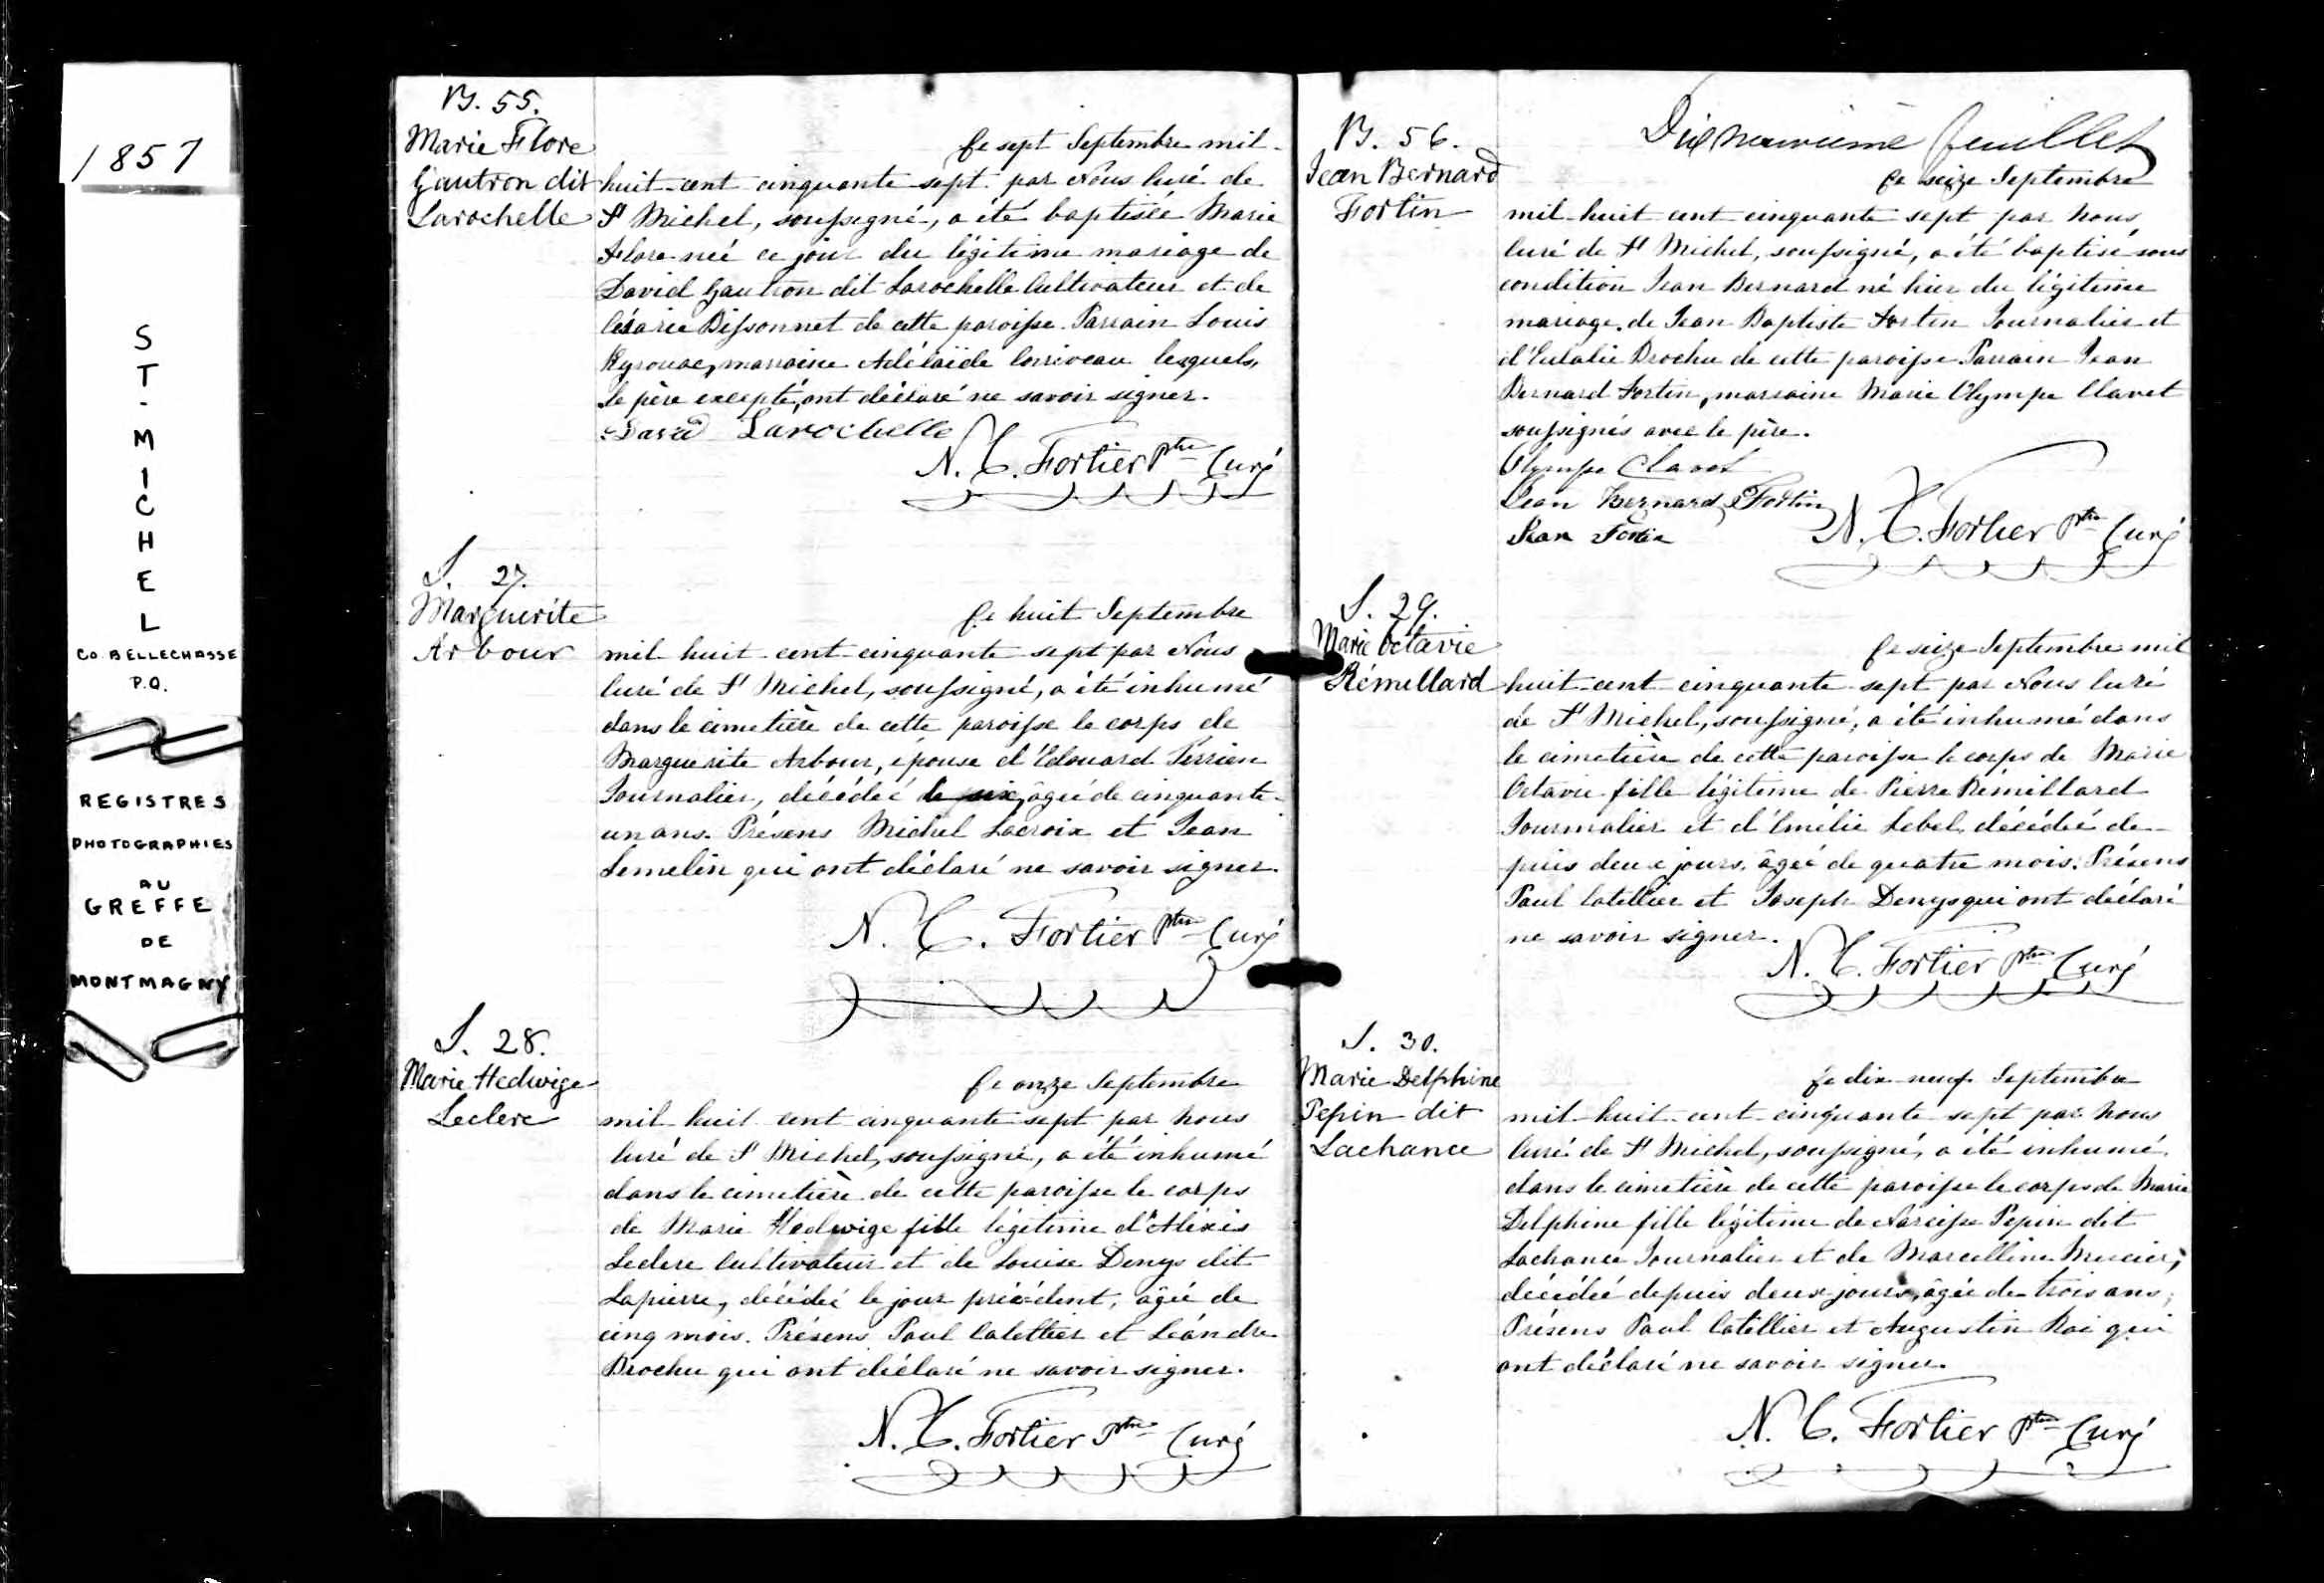 1857
ST-MICHEL
CO. BELLECHASSE
P.Q.
REGISTRES
PHOTOGRAPHIES
AU
GREFFE
DE
MONTMAGNY
B. 55.
Marie Flore
Gautron dit
Larochelle
Ce sept Septembre mil-
huit-cent cinquante-sept par Nous Curé de
St Michel, soussigné, a été baptisée Marie
Flore née ce jour du légitime mariage de
David Gautron dit Larochelle Cultivateur et de
Césarie Bissonnet de cette paroisse. Parrain Louis
Kyrouac, marraine Adélaïde Corriveau lesquels,
le père excepté, ont déclaré ne savoir signer.
David Larochelle
N. C. Fortier Ptre Curé
S. 27.
Marguerite
Arbour
Ce huit Septembre
mil huit-cent-cinquante sept par Nous
Curé de St Michel, soussigné, a été inhumé
dans le cimetière de cette paroisse le corps de
Marguerite Arbour, épouse d'Edouard Terrien
Journalier, décédée le six, âgée de cinquante-
un ans. Présens Michel Lacroix et Jean
Lemelin qui ont déclaré ne savoir signer.
N. C. Fortier Ptre Curé
S. 28.
Marie Hedwige
Leclerc
Ce onze Septembre
mil huit cent cinquante sept par nous
Curé de St Michel, soussigné, a été inhumé
dans le cimetière de cette paroisse le corps
de Marie Hedwige fille légitime d'Aléxis
Leclerc Cultivateur et de Louise Denys dit
Lapierre, décédée le jour précédent, âgée de
cinq mois. Présens Paul Catellier et Léandre
Brochu qui ont déclaré ne savoir signer.
N. C. Fortier Ptre Curé
Dix neuvième feuillet
B. 56.
Jean Bernard
Fortin
Ce seize Septembre
mil-huit cent cinquante sept par nous
Curé de St Michel, soussigné, a été baptisé sous
condition Jean Bernard né hier du légitime
mariage de Jean Baptiste Fortin Journalier et
d'Eulalie Brochu de cette paroisse Parrain Jean
Bernard Fortin, marraine Marie Olympe Clavet
soussignés avec le père.
Olympe Clavet
Jean Bernard Fortin
Jean Fortin
N. C. Fortier Ptre Curé
S. 29.
Marie Octavie
Rémillard
Ce seize Septembre mil
huit-cent cinquante sept par Nous Curé
de St Michel, soussigné, a été inhumé dans
le cimetière de cette paroisse le corps de Marie
Octavie fille légitime de Pierre Rémillard
Journalier et d'Emélie Lebel, décédée de-
puis deux jours, âgée de quatre mois. Présens
Paul Catellier et Joseph Denys qui ont déclaré
ne savoir signer.
N. C. Fortier Ptre Curé
S. 30.
Marie Delphine
Pepin dit
Lachance
Ce dix-neuf Septembre
mil-huit-cent-cinquante sept par nous
Curé de St Michel, soussigné, a été inhumé
dans le cimetière de cette paroisse le corps de Marie
Delphine fille légitime de Narcisse Pepin dit
Lachance Journalier et de Marcelline Mercier,
décédée depuis deux jours, âgée de trois ans;
Présens Paul Catellier et Augustin Roi qui
ont déclaré ne savoir signer.
N. C. Fortier Ptre Curé